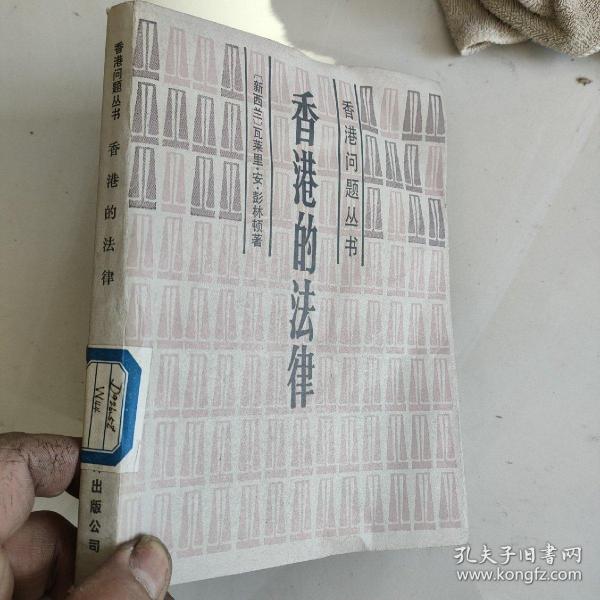 香港问题丛书
香港的法律
〔新西兰〕瓦莱里·安·彭林顿著
香港问题丛书
香港的法律
出版公司
孔夫子旧书网
www.kongfz.com